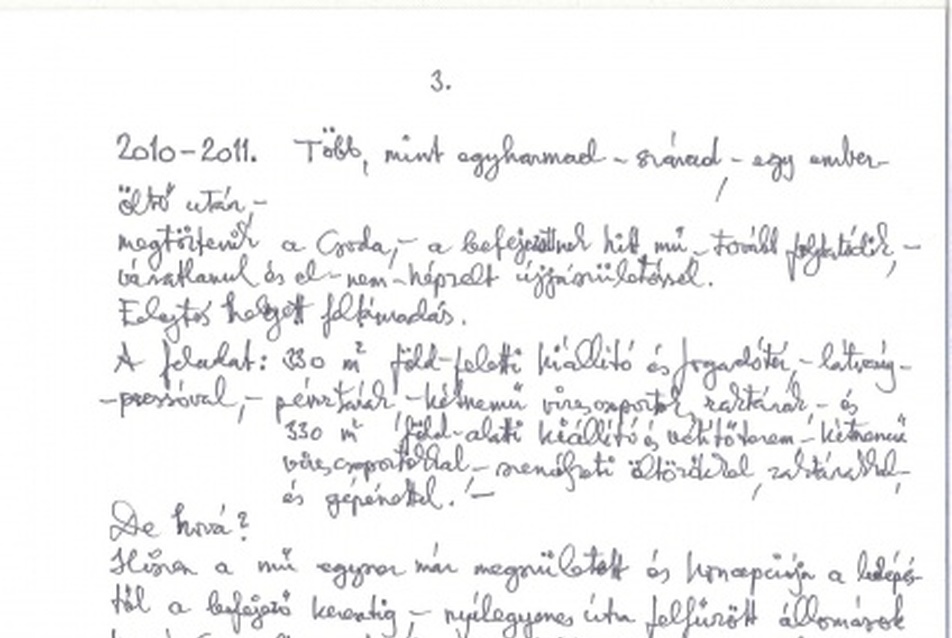 3.
2010-2011. Több, mint egyharmad - század - egy ember-
öltő után,-
megtörténik a Csoda,- a befejezettnek hitt mű - tovább folytatódik,-
váratlanul és el-nem-képzelt újjászületéssel.
Felejtés helyett feltámadás.
A feladat: 330 m² föld-feletti kiállító és fogadótér,- látvány-
-presszóval,- pénztárak,- kétnemű vizescsoportok, raktárak - és
330 m² föld-alatti kiállító és vetítőterem - kétnemű
vizescsoportokkal - személyzeti öltözőkkel, raktárakkal,
és gépészettel.!-
De hová?
Hiszen a mű egyszer már megszületett és koncepciója a belépés-
től a befejező keresztig - nyílegyenes útra felfűzött állomások